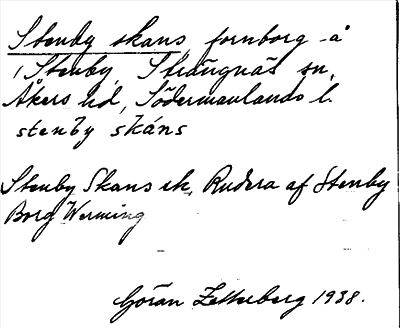 Stenby skans, fornborg å
/ Stenby, Strängnäs sn,
Åkers hd, Södermanlands l.
stenby skáns
Stenby Skans ek, Rudera af Stenby
Borg Werming
Göran Zetterberg 1938.